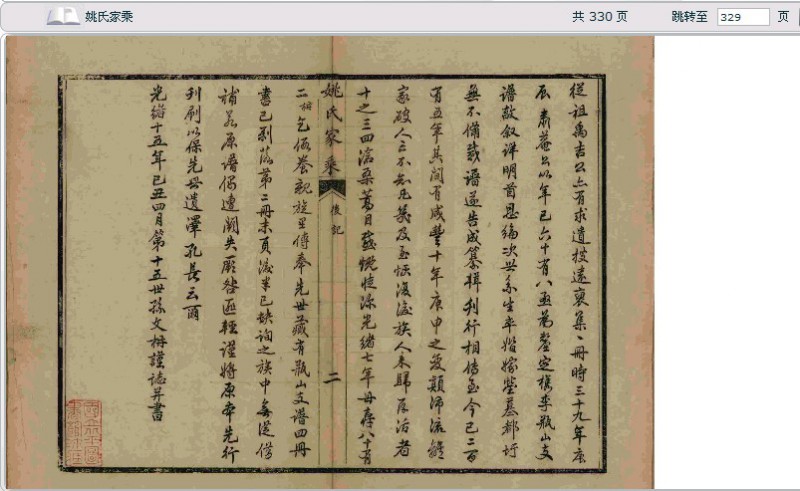 姚氏家乘
共 330 页
跳转至 329 页
從祖禹吉公亦有求遺搜遠裒集、冊時三十九年庚
辰肅菴公以年已六十有八亟為鳌定檇李瓶山支
譜敬叙詳明首恩綸次世系生卒婚嫁塋墓都圩
無不備載譜遂告成纂輯刊行相傳至今已二百
有五年其間有咸豐十年庚申之变顛沛流離
家破人亡不知凡幾及至恢復後族人來歸存活者
十之三四滄桑蒿目感慨悽深光緒七年母存八十有
姚氏家乘
後記
二
二栴乞假養親旋里傳奉先世藏有瓶山支譜四冊
書已剥落第二冊末頁後半已缺詢之族中無從借
補若原譜仍遭闕失厥咎匪輕謹將原本先行
刊刷以保先世遺澤孔長云爾
光緒十五年己丑四月第十五世孫文栴謹誌并書